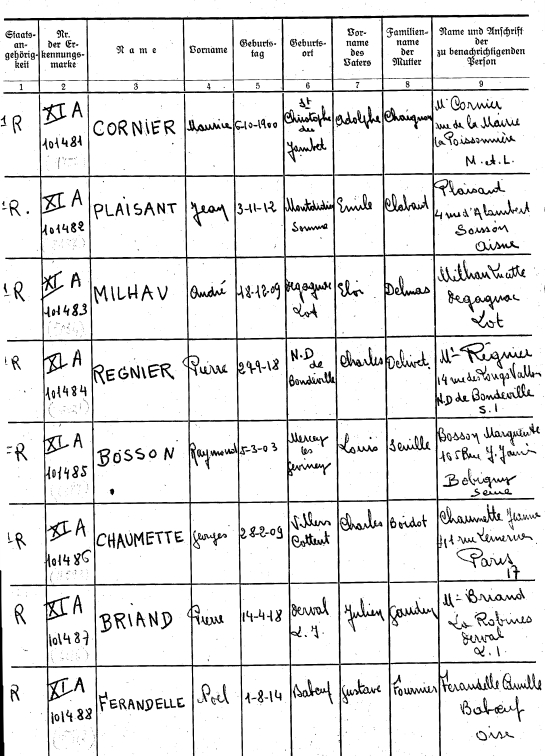 Staats-
an-
gehörig-
keit
Nr.
der Er-
kennungs-
marke
Name
Vorname
Geburts-
tag
Geburts-
ort
Vor-
name
des
Vaters
Familien-
name
der
Mutter
Name und Anschrift
der
zu benachrichtigenden
Person
1 2 3 4 5 6 7 8 9
R
XI A
101481
CORNIER
Maurice
6-10-1900
St
Christophe
du
Jambet
Adolphe
Chaignon
Me Cornier
rue de la Mairie
La Poissonnière
M. et. L.
R.
XI A
101482
PLAISANT
Jean
3-11-12
Montdidier
Somme
Emile
Clabaut
Plaisant
4 rue d'Alembert
Soisson
Aisne
R
XI A
101483
MILHAV
André
18-12-09
Degagnac
Lot
Eloi
Delmas
Milhau
Degagnac
Lot
R
XI A
101484
REGNIER
Pierre
29-9-18
N.D
de
Bondeville
Charles
Me Régnier
14 rue des Longs Vallons
N.D de Bondeville
S. I
R
XI A
101485
BOSSON
Raymond
5-3-03
Mercey
les
Louis
Seville
Bosson Marguerite
165 Rue J. Jaurès
Bobigny
Seine
R
XI A
101486
CHAUMETTE
Georges
28-2-09
Villers
Cotteret
Charles
Boidot
Chaumette Jeanne
rue Lemercier
Paris
17
R
XI A
101487
BRIAND
Pierre
14-4-18
Derval
L. I.
Julien
Gaudin
Me Briand
La Robines
Derval
L. I
R
XI A
101488
FERANDELLE
Noël
1-8-14
Babœuf
Gustave
Fournier
Ferandelle Camille
Babœuf
Oise